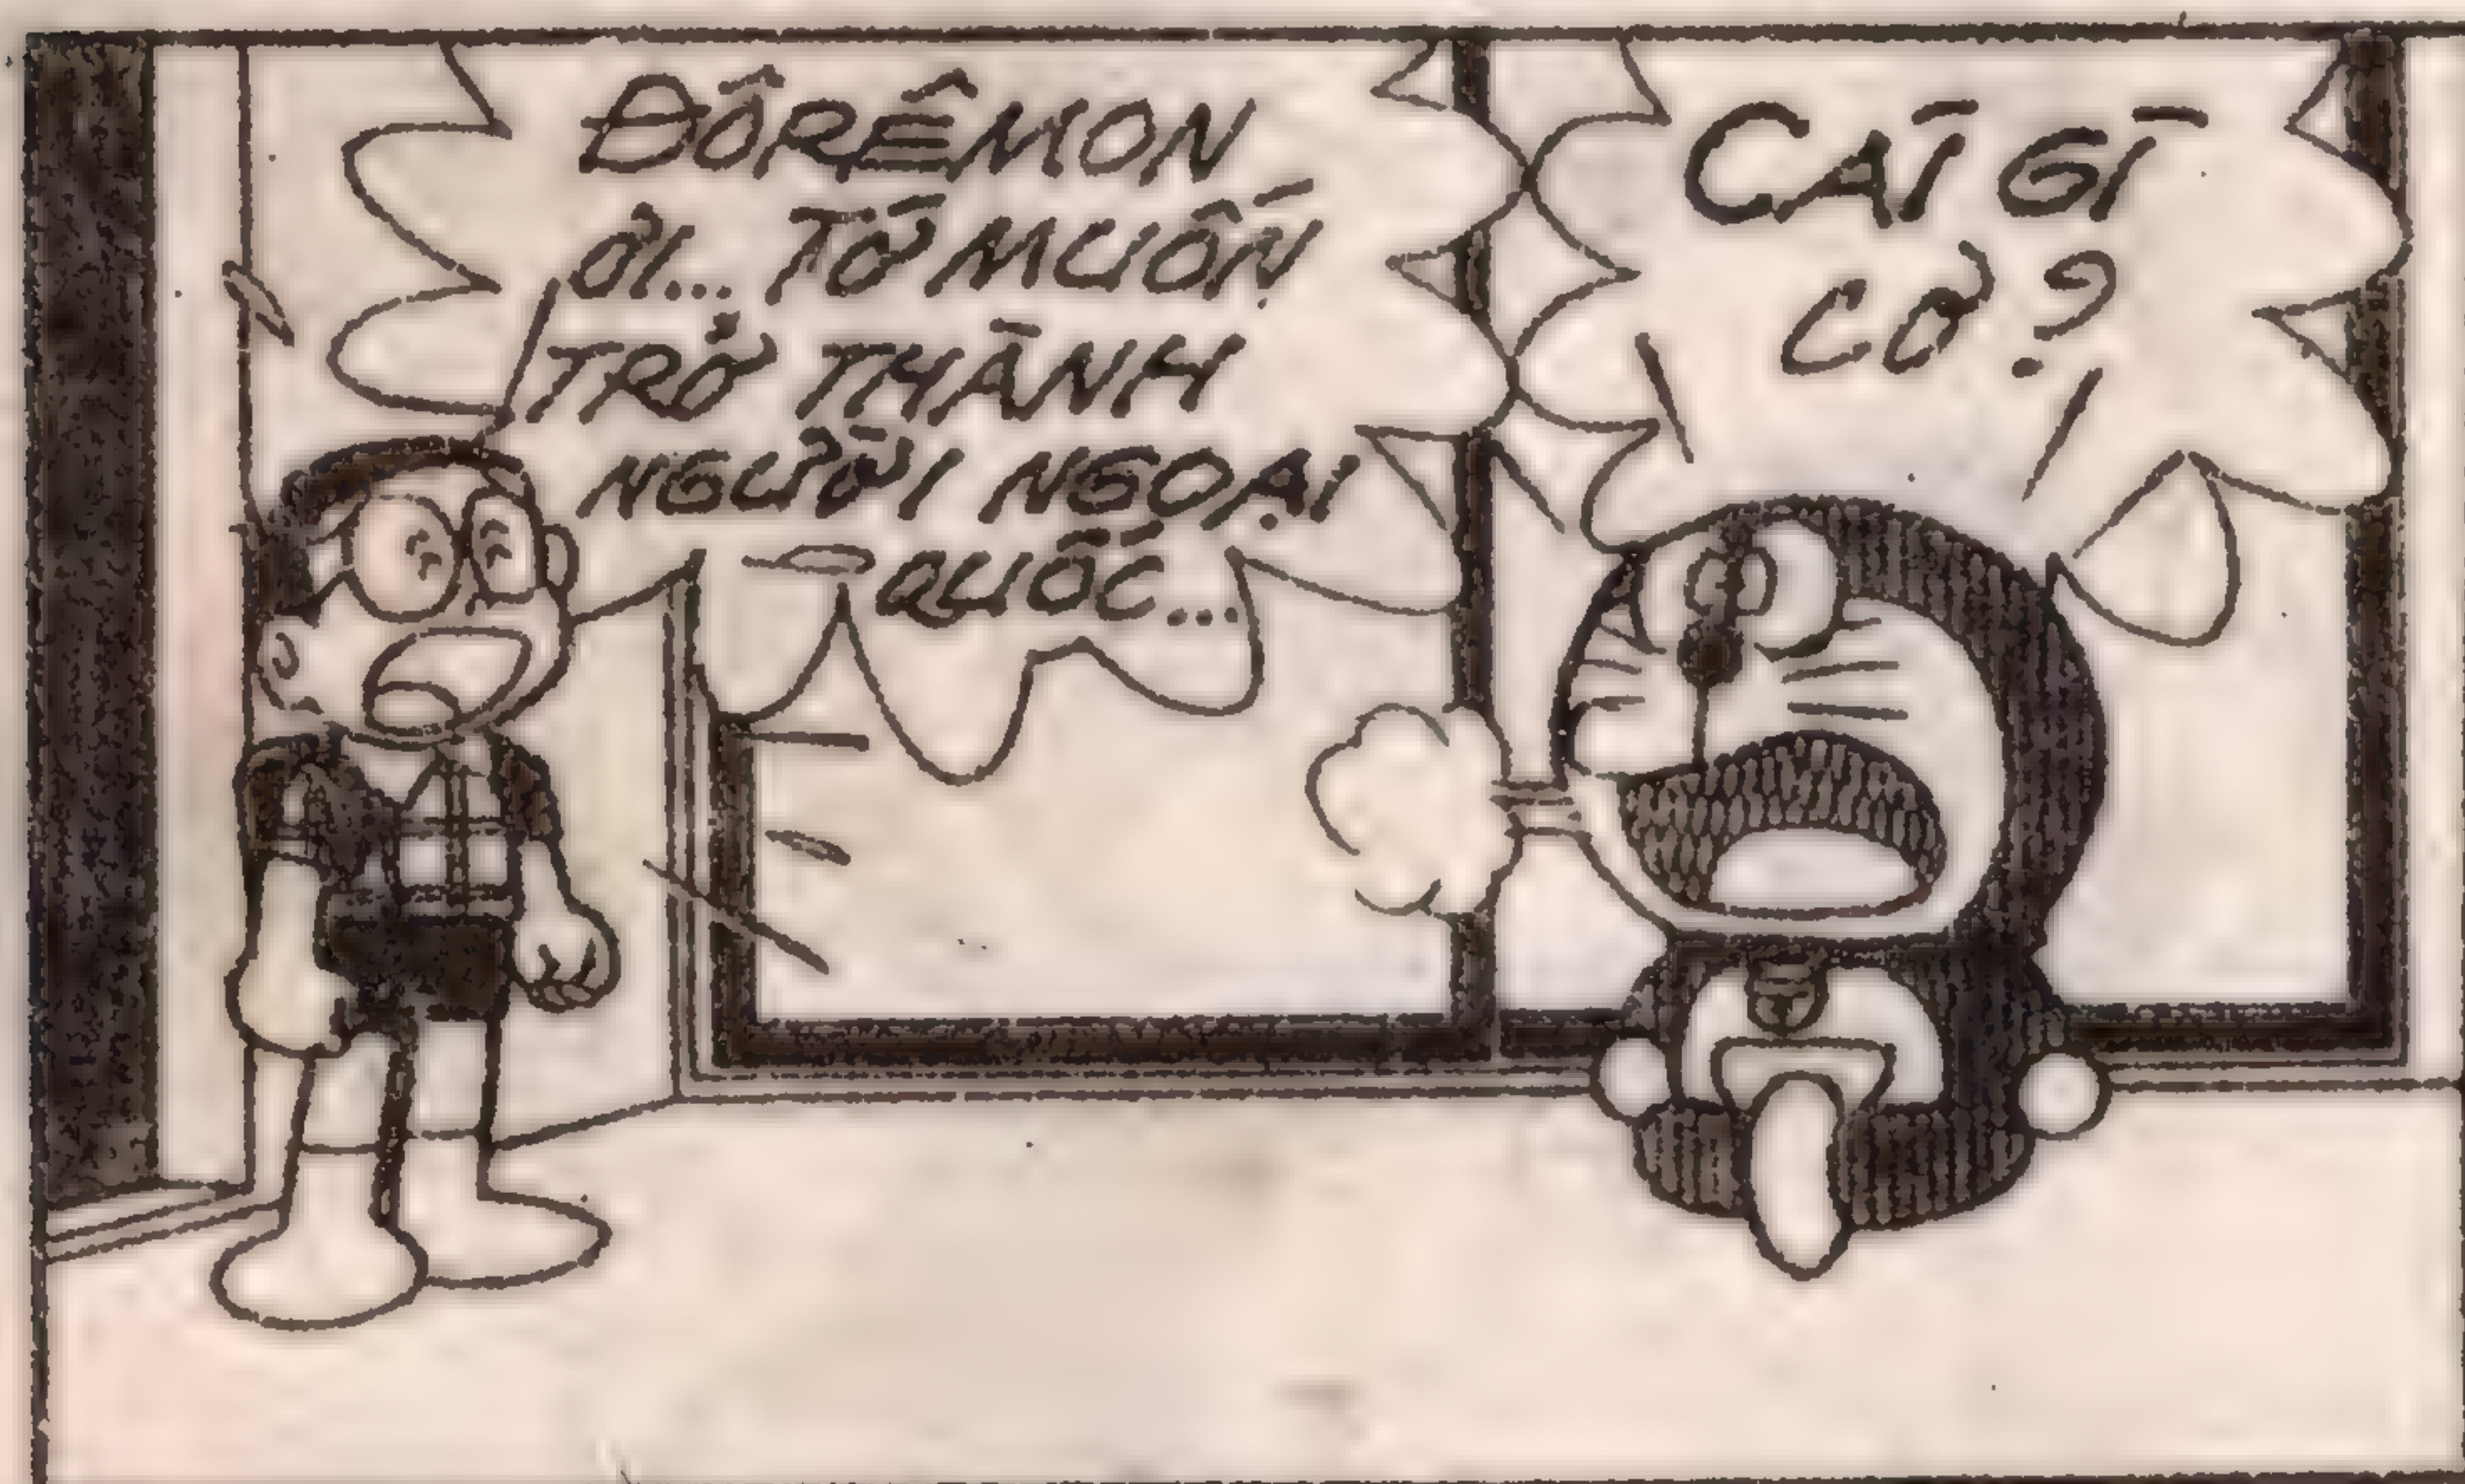 ĐÔRÊMON
ƠI... TỚ MUỐN
TRỞ THÀNH
NGƯỜI NGOẠI
QUỐC...
CÁI GÌ
CƠ?